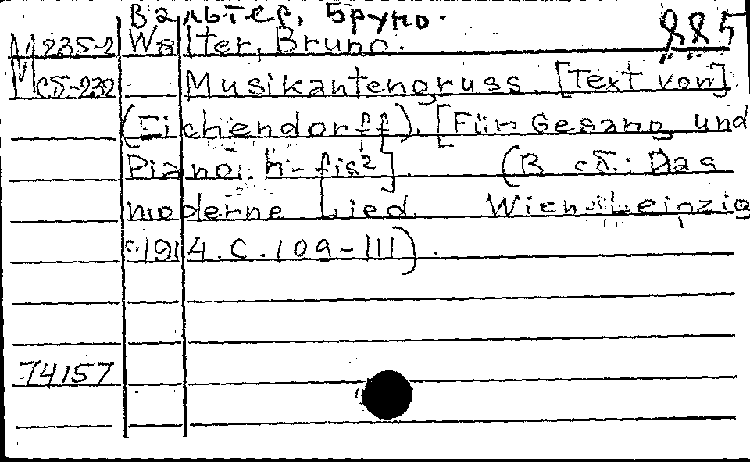 Вальтер, Бруно.
М 235-2 Walter, Bruno. 885
Мсб-232 Musikantengruss. [Text von]
(Eichendorff). [Für Gesang und
Piano. h-fis²]. (В сб.: Das
moderne Lied. Wien-Leipzig
1914. С. 109-111).
74157